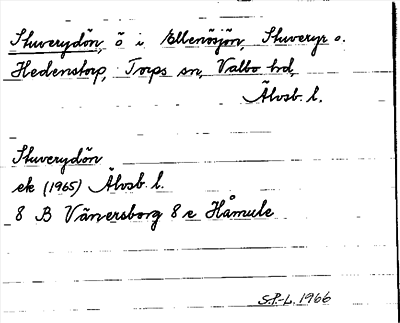 Stuverydön, ö i Ellenösjön, Stuveryr o.
Hedenstorp, Torps sn, Valbo hd,
Älvsb. l.
Stuverydön
ek (1965) Älvsb. l.
8 B Vänersborg 8 e Håmule
S.P.-L. 1966